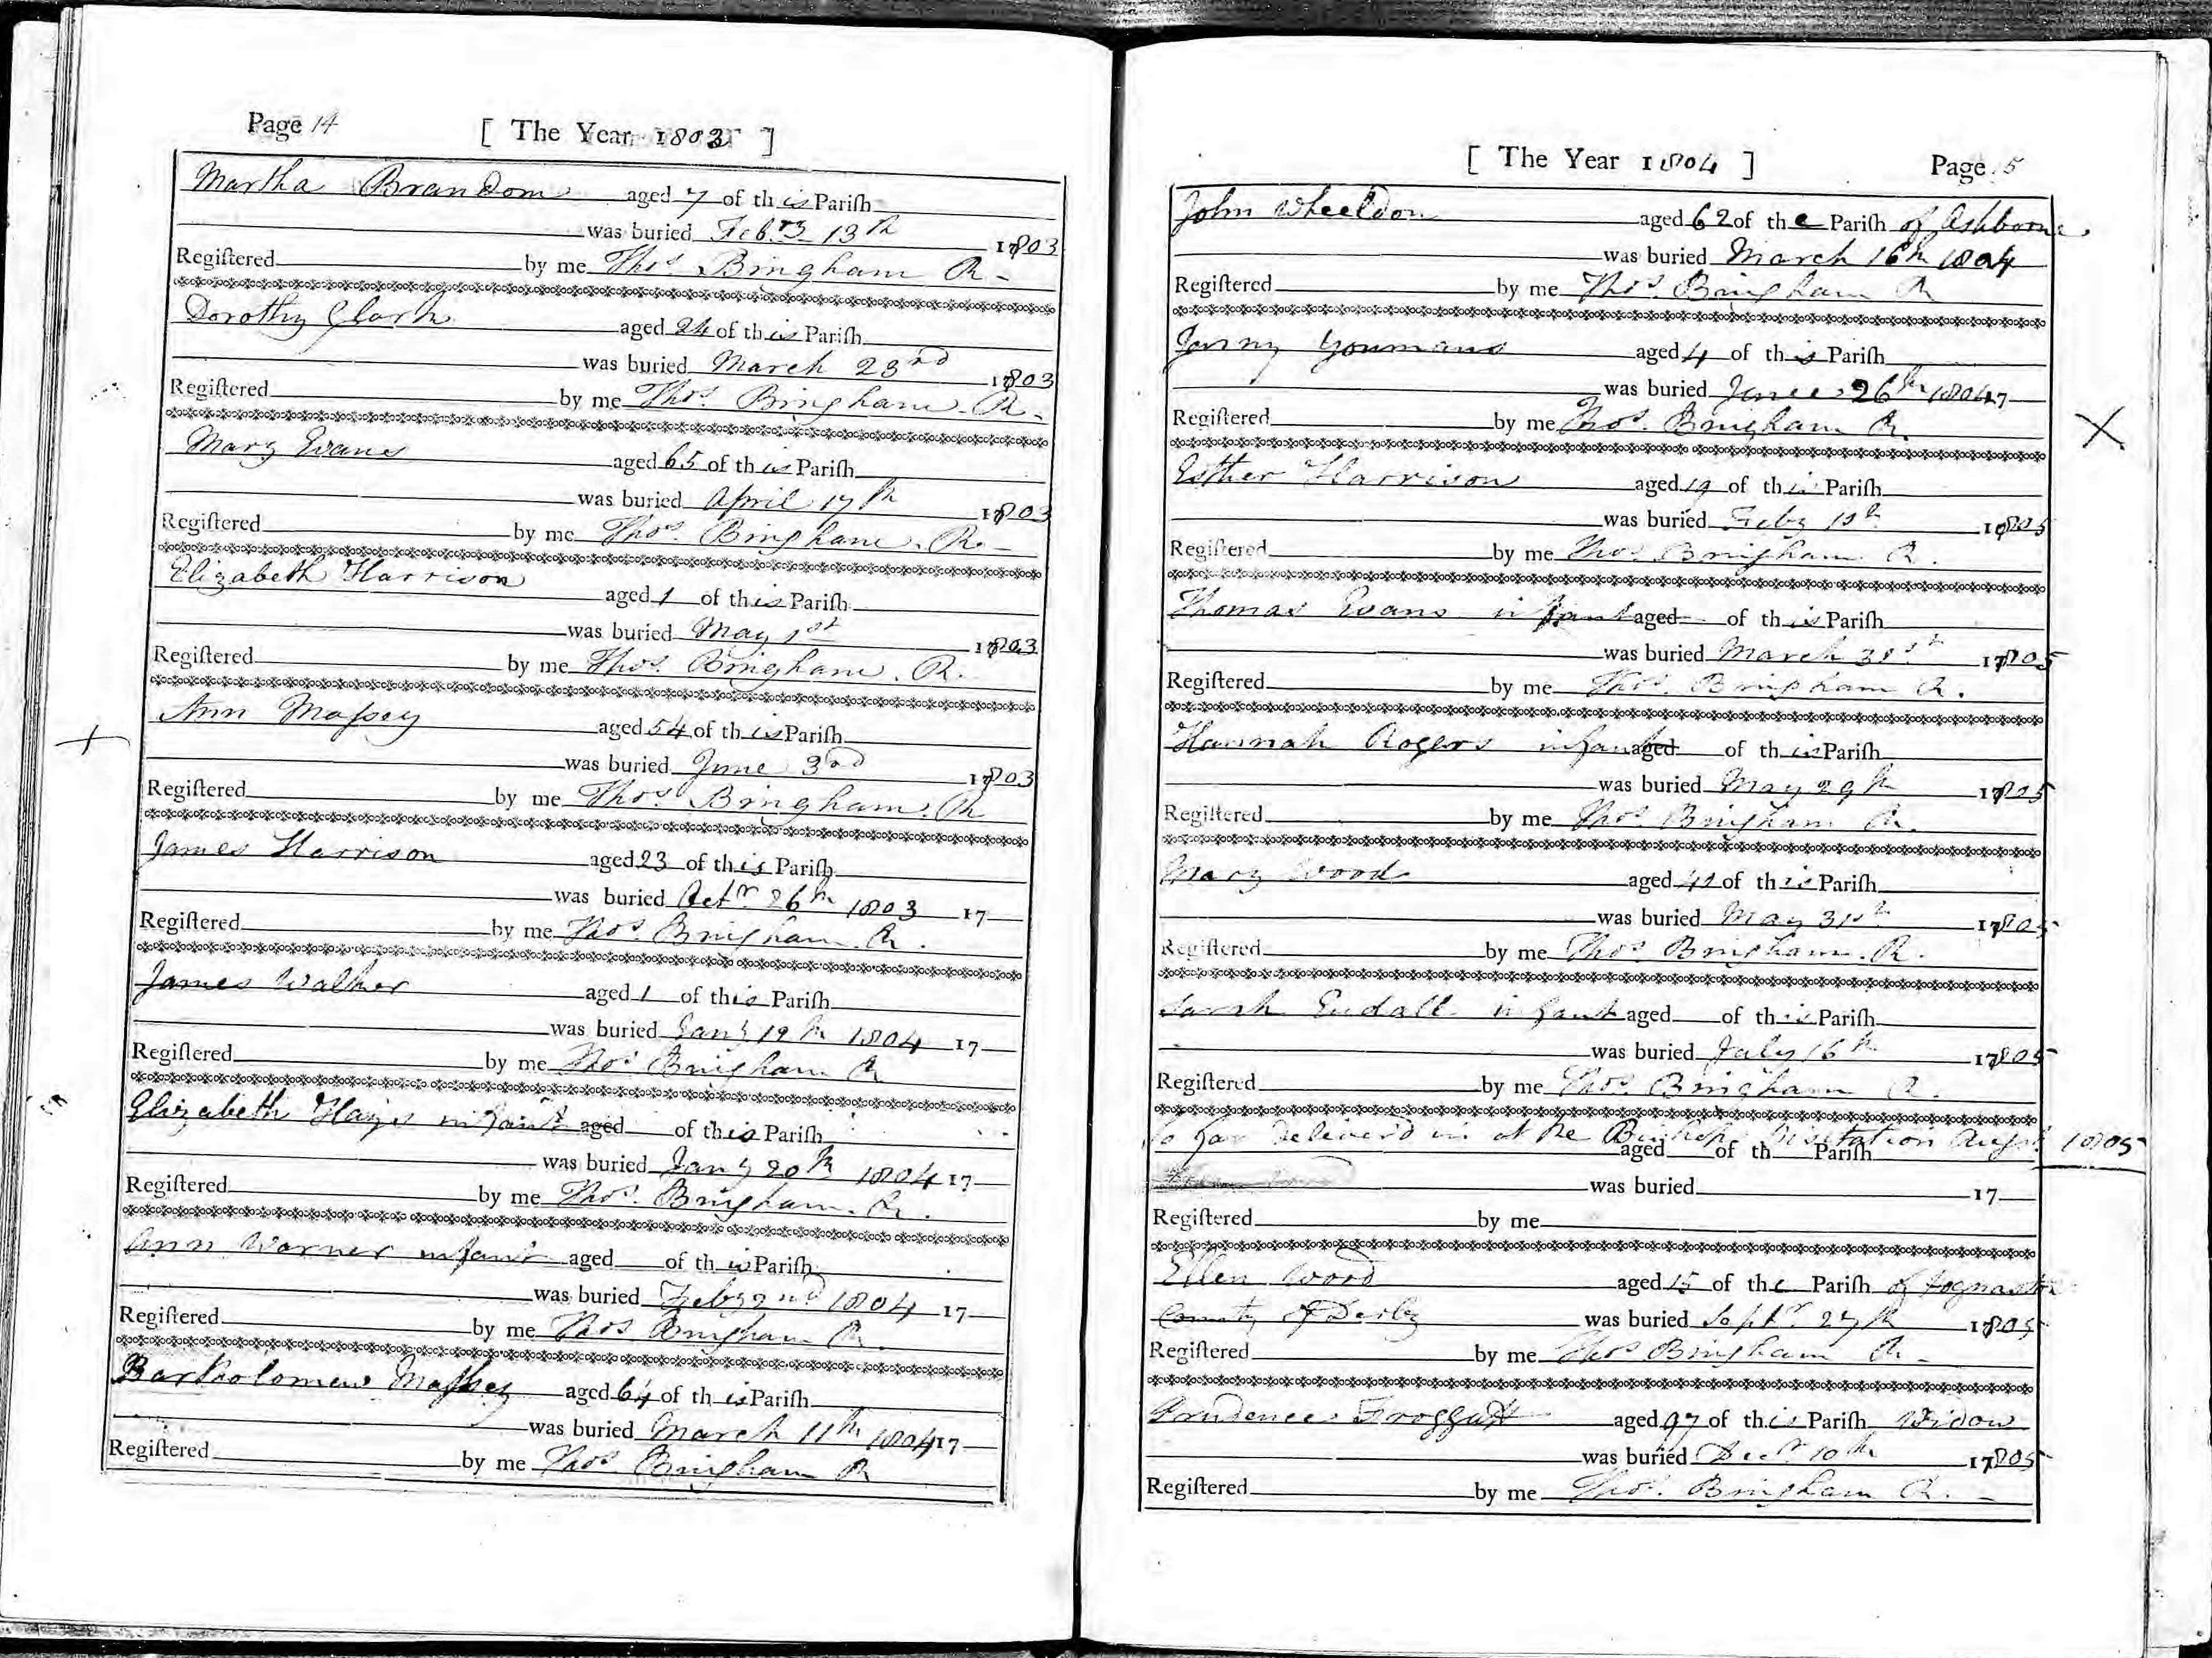 Page 14 [ The Year 1803 ]
Martha Brandom aged 7 of this Parish
was buried Feb.ry 13th 1803
Registered by me Thos. Bingham R
Dorothy Clark aged 24 of this Parish
was buried March 23rd 1803
Registered by me Thos. Bingham R.
Mary Evans aged 65 of this Parish
was buried April 17th 1803
Registered by me Thos. Bingham. R.
Elizabeth Harrison aged 1 of this Parish
was buried May 1st 1803
Registered by me Thos. Bingham. R.
Ann Massey aged 54 of this Parish
was buried June 3rd 1803
Registered by me Thos. Bingham. R
James Harrison aged 23 of this Parish
was buried Octr. 26th 1803 17
Registered by me Thos. Bingham. R.
James Walker aged 1 of this Parish
was buried Jany 19th 1804 17
Registered by me Thos Bingham R
Elizabeth Hayes infant aged of this Parish
was buried Jany 20th 1804 17
Registered by me Thos. Bingham. R.
Ann Warner infant aged of this Parish
was buried Feby 2nd 1804 17
Registered by me Thos Bingham R.
Bartholomew Massey aged 64 of this Parish
was buried March 11th 1804 17
Registered by me Thos. Bingham R
[ The Year 1804 ] Page 15
John Wheeldon aged 62 of the Parish of Ashborne.
was buried March 16th 1804
Registered by me Thos. Bingham R
Jenny Youmans aged 4 of this Parish
was buried June 26th 1804 17
Registered by me Thos. Bingham R.
Esther Harrison aged 19 of this Parish
was buried Feby 10th 1805
Registered by me Thos Bingham R.
Thomas Evans infant aged of this Parish
was buried March 31st 1805
Registered by me Thos. Bingham R.
Hannah Rogers infant aged of this Parish
was buried May 29th 1805
Registered by me Thos. Bingham R.
Mary Wood aged 41 of this Parish
was buried May 31st 1805
Registered by me Thos Bingham. R.
Sarah infant aged of this Parish
was buried July 16th 1805
Registered by me Thos. Bingham R.
So far deliver'd in at the Bishop's Visitation Augst 1805
aged of th Parish
was buried 17
Registered by me
Ellen Wood aged 15 of the Parish of
County of Derby was buried Septr. 27th 1805
Registered by me Thos Bingham R.
Prudence Froggatt aged 97 of this Parish Widow
was buried Decr 10th 1805
Registered by me Thos. Bingham R.